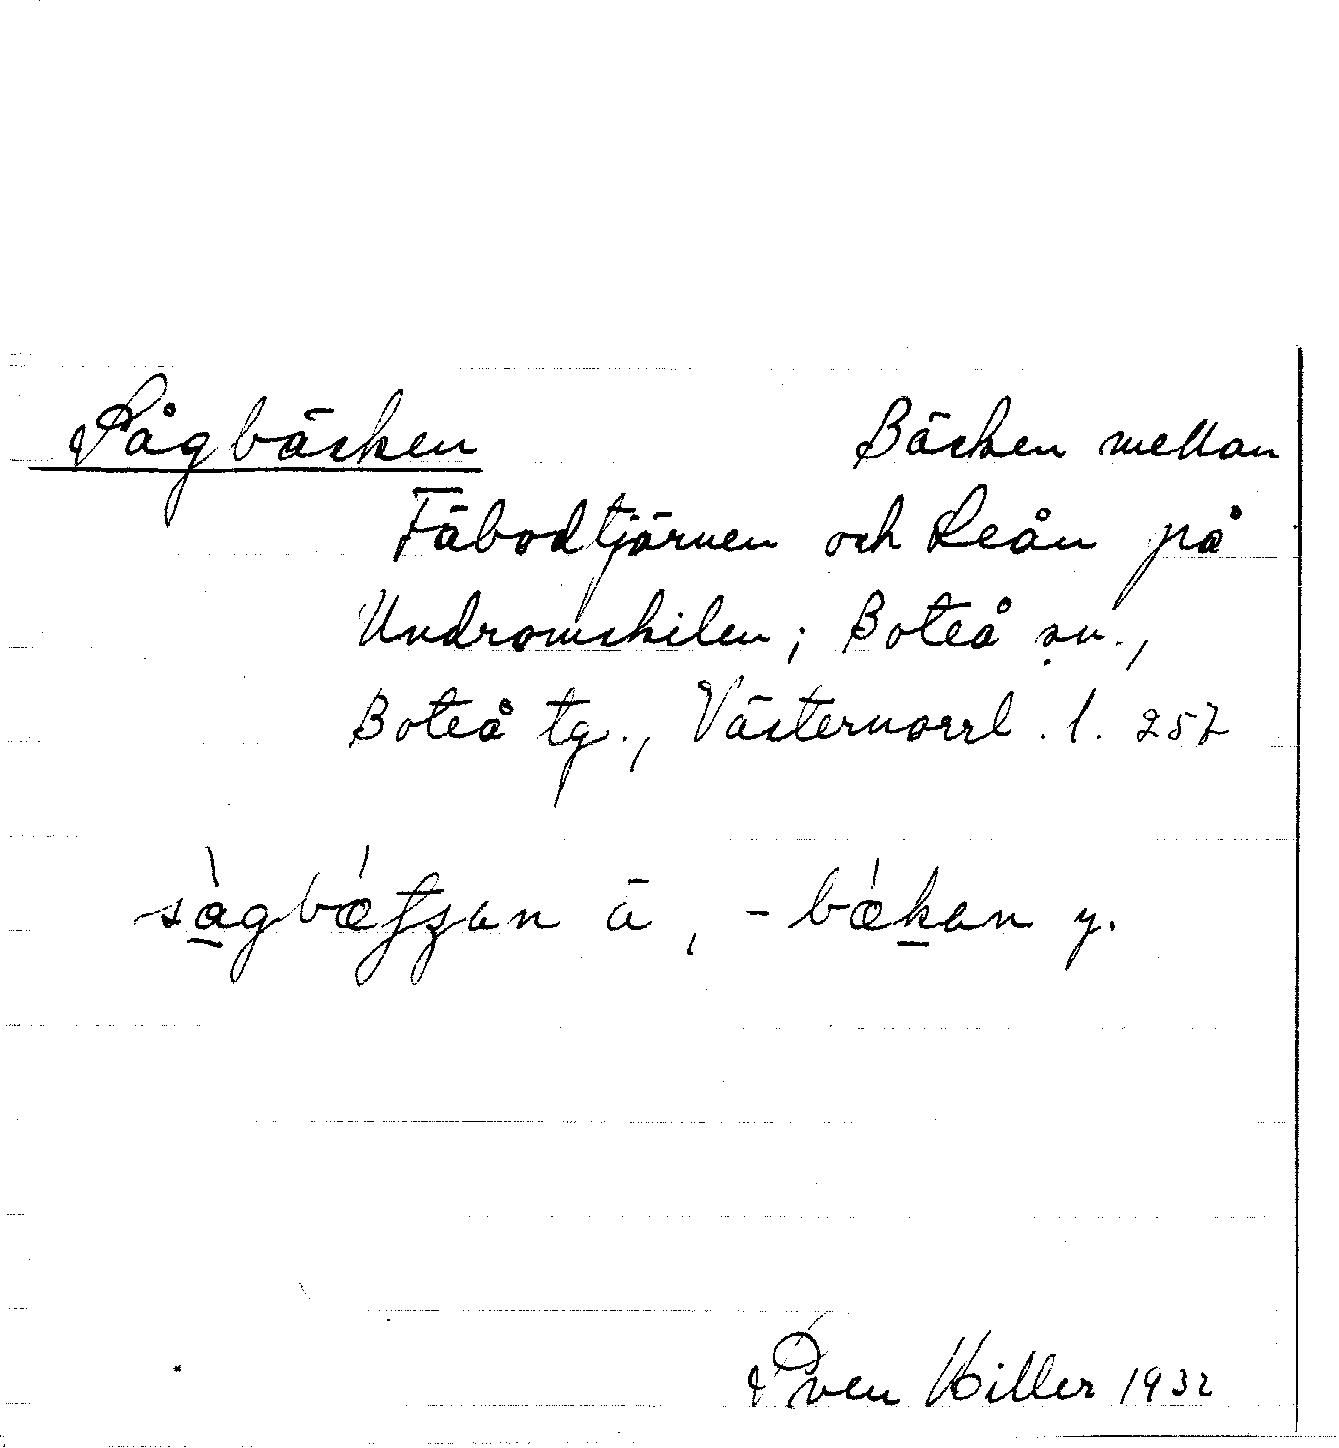 Sågbäcken Bäcken mellan
Fäbodtjärnen och Leån på
Undromskilen; Boteå sn.,
Boteå tg., Västernorrl. l. 257
ä, - bǽkan y.
Sven Hiller 1932